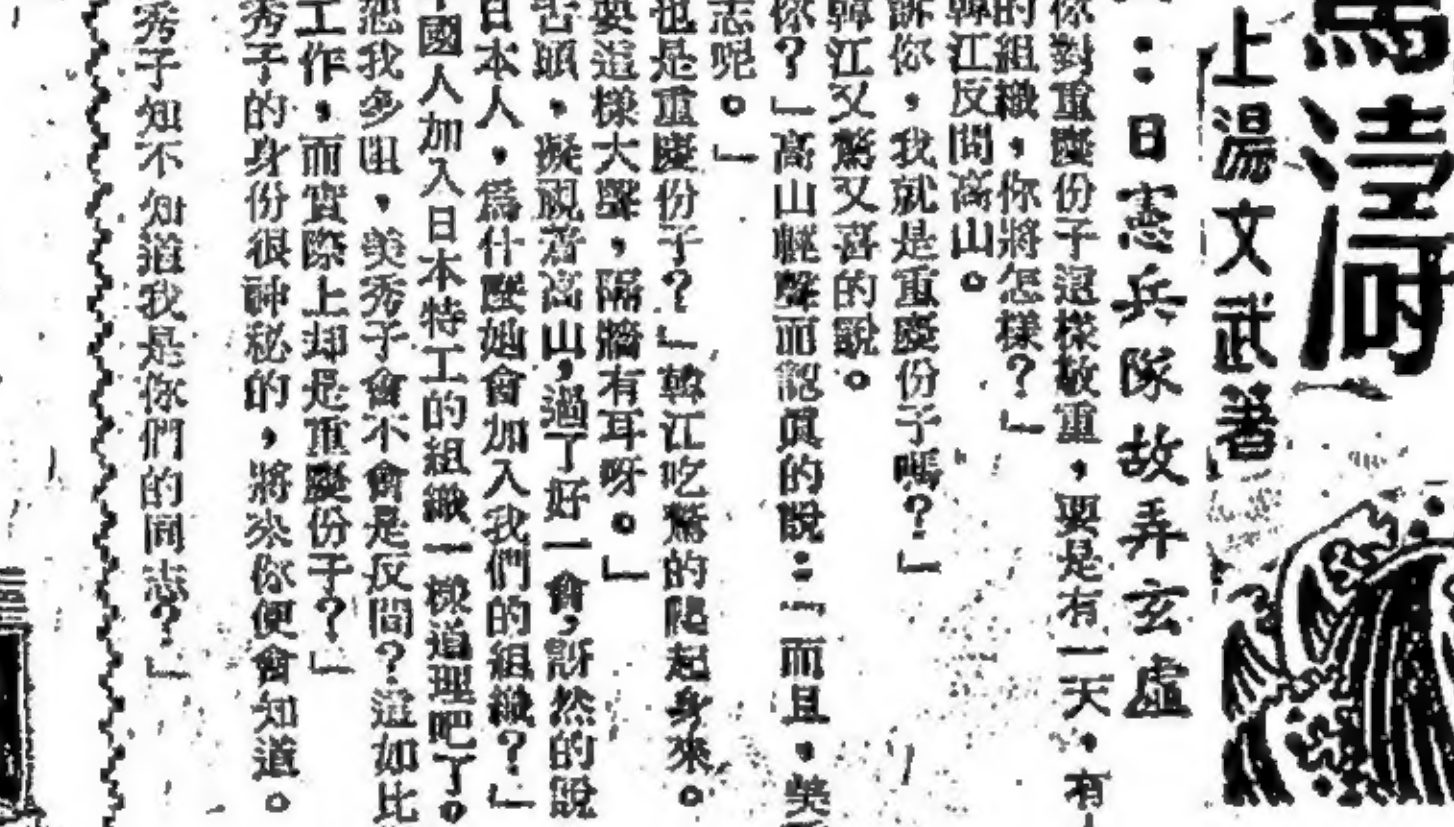 濤
上湯文武著
：日憲兵隊故弄玄虛
你對重慶份子這樣敬重，要是有一天，有
的組織，你將怎樣？」
韓江反問高山。
訴你，我就是重慶份子嗎？」
韓江又驚又喜的說。
你？」高山輕聲而認眞的說：「而且，美
志呢。」
也是重慶份子？」韓江吃驚的爬起身來。
要這樣大聲，隔牆有耳呀。」
舌頭，凝視着高山，過了好一會，訝然的說
日本人，爲什麼她會加入我們的組織？」
國人加入日本特工的組織一樣道理吧了。
恕我多咀，美秀子會不會是反間？這如比
工作，而實際上却是重慶份子？」
秀子的身份很神秘的，將來你便會知道。
秀子知不知道我是你們的同志？」